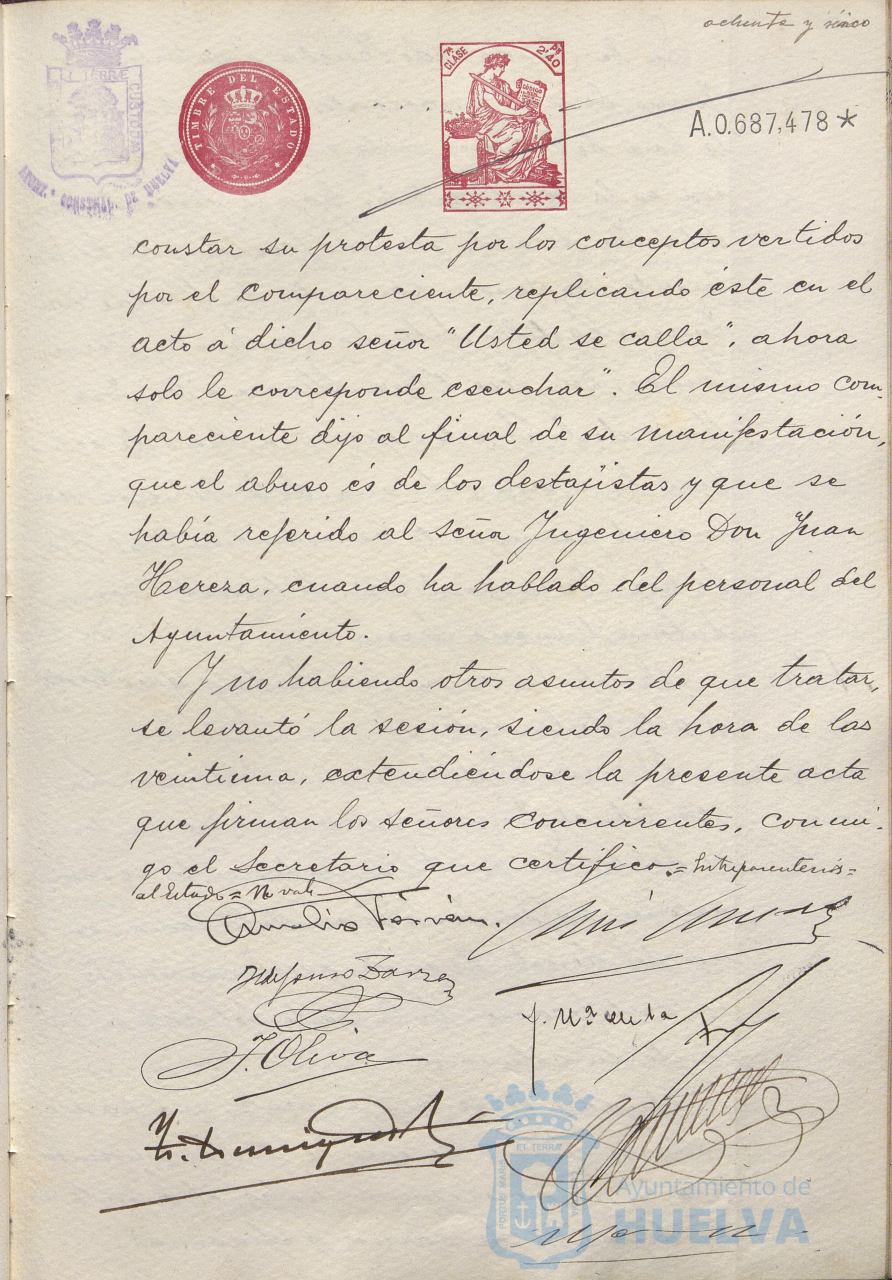 ochenta y cinco
TIMBRE DEL ESTADO
7ª CLASE
2'40
CÓDIGO
A.0.687,478 *
ET TERRÆ CUSTODIA
AYUNT.º CONSTNAL. DE HUELVA
constar su protesta por los conceptos vertidos
por el compareciente, replicando éste en el
acto á dicho señor "Usted se calla", ahora
solo le corresponde escuchar". El mismo com-
pareciente dijo al final de su manifestación,
que el abuso és de los destajistas y que se
había referido al señor Ingeniero Don Juan
Hereza, cuando ha hablado del personal del
Ayuntamiento.
Y no habiendo otros asuntos de que tratar,
se levantó la sesión, siendo la hora de las
veintiuna, extendiéndose la presente acta
que firman los señores concurrentes, conmi-
go el Secretario que certifico.=Entreparentesis=
al Estado=No vale
J. Mª
J. Oliva
PORTUS MARIS ET TERRÆ
Ayuntamiento de
HUELVA